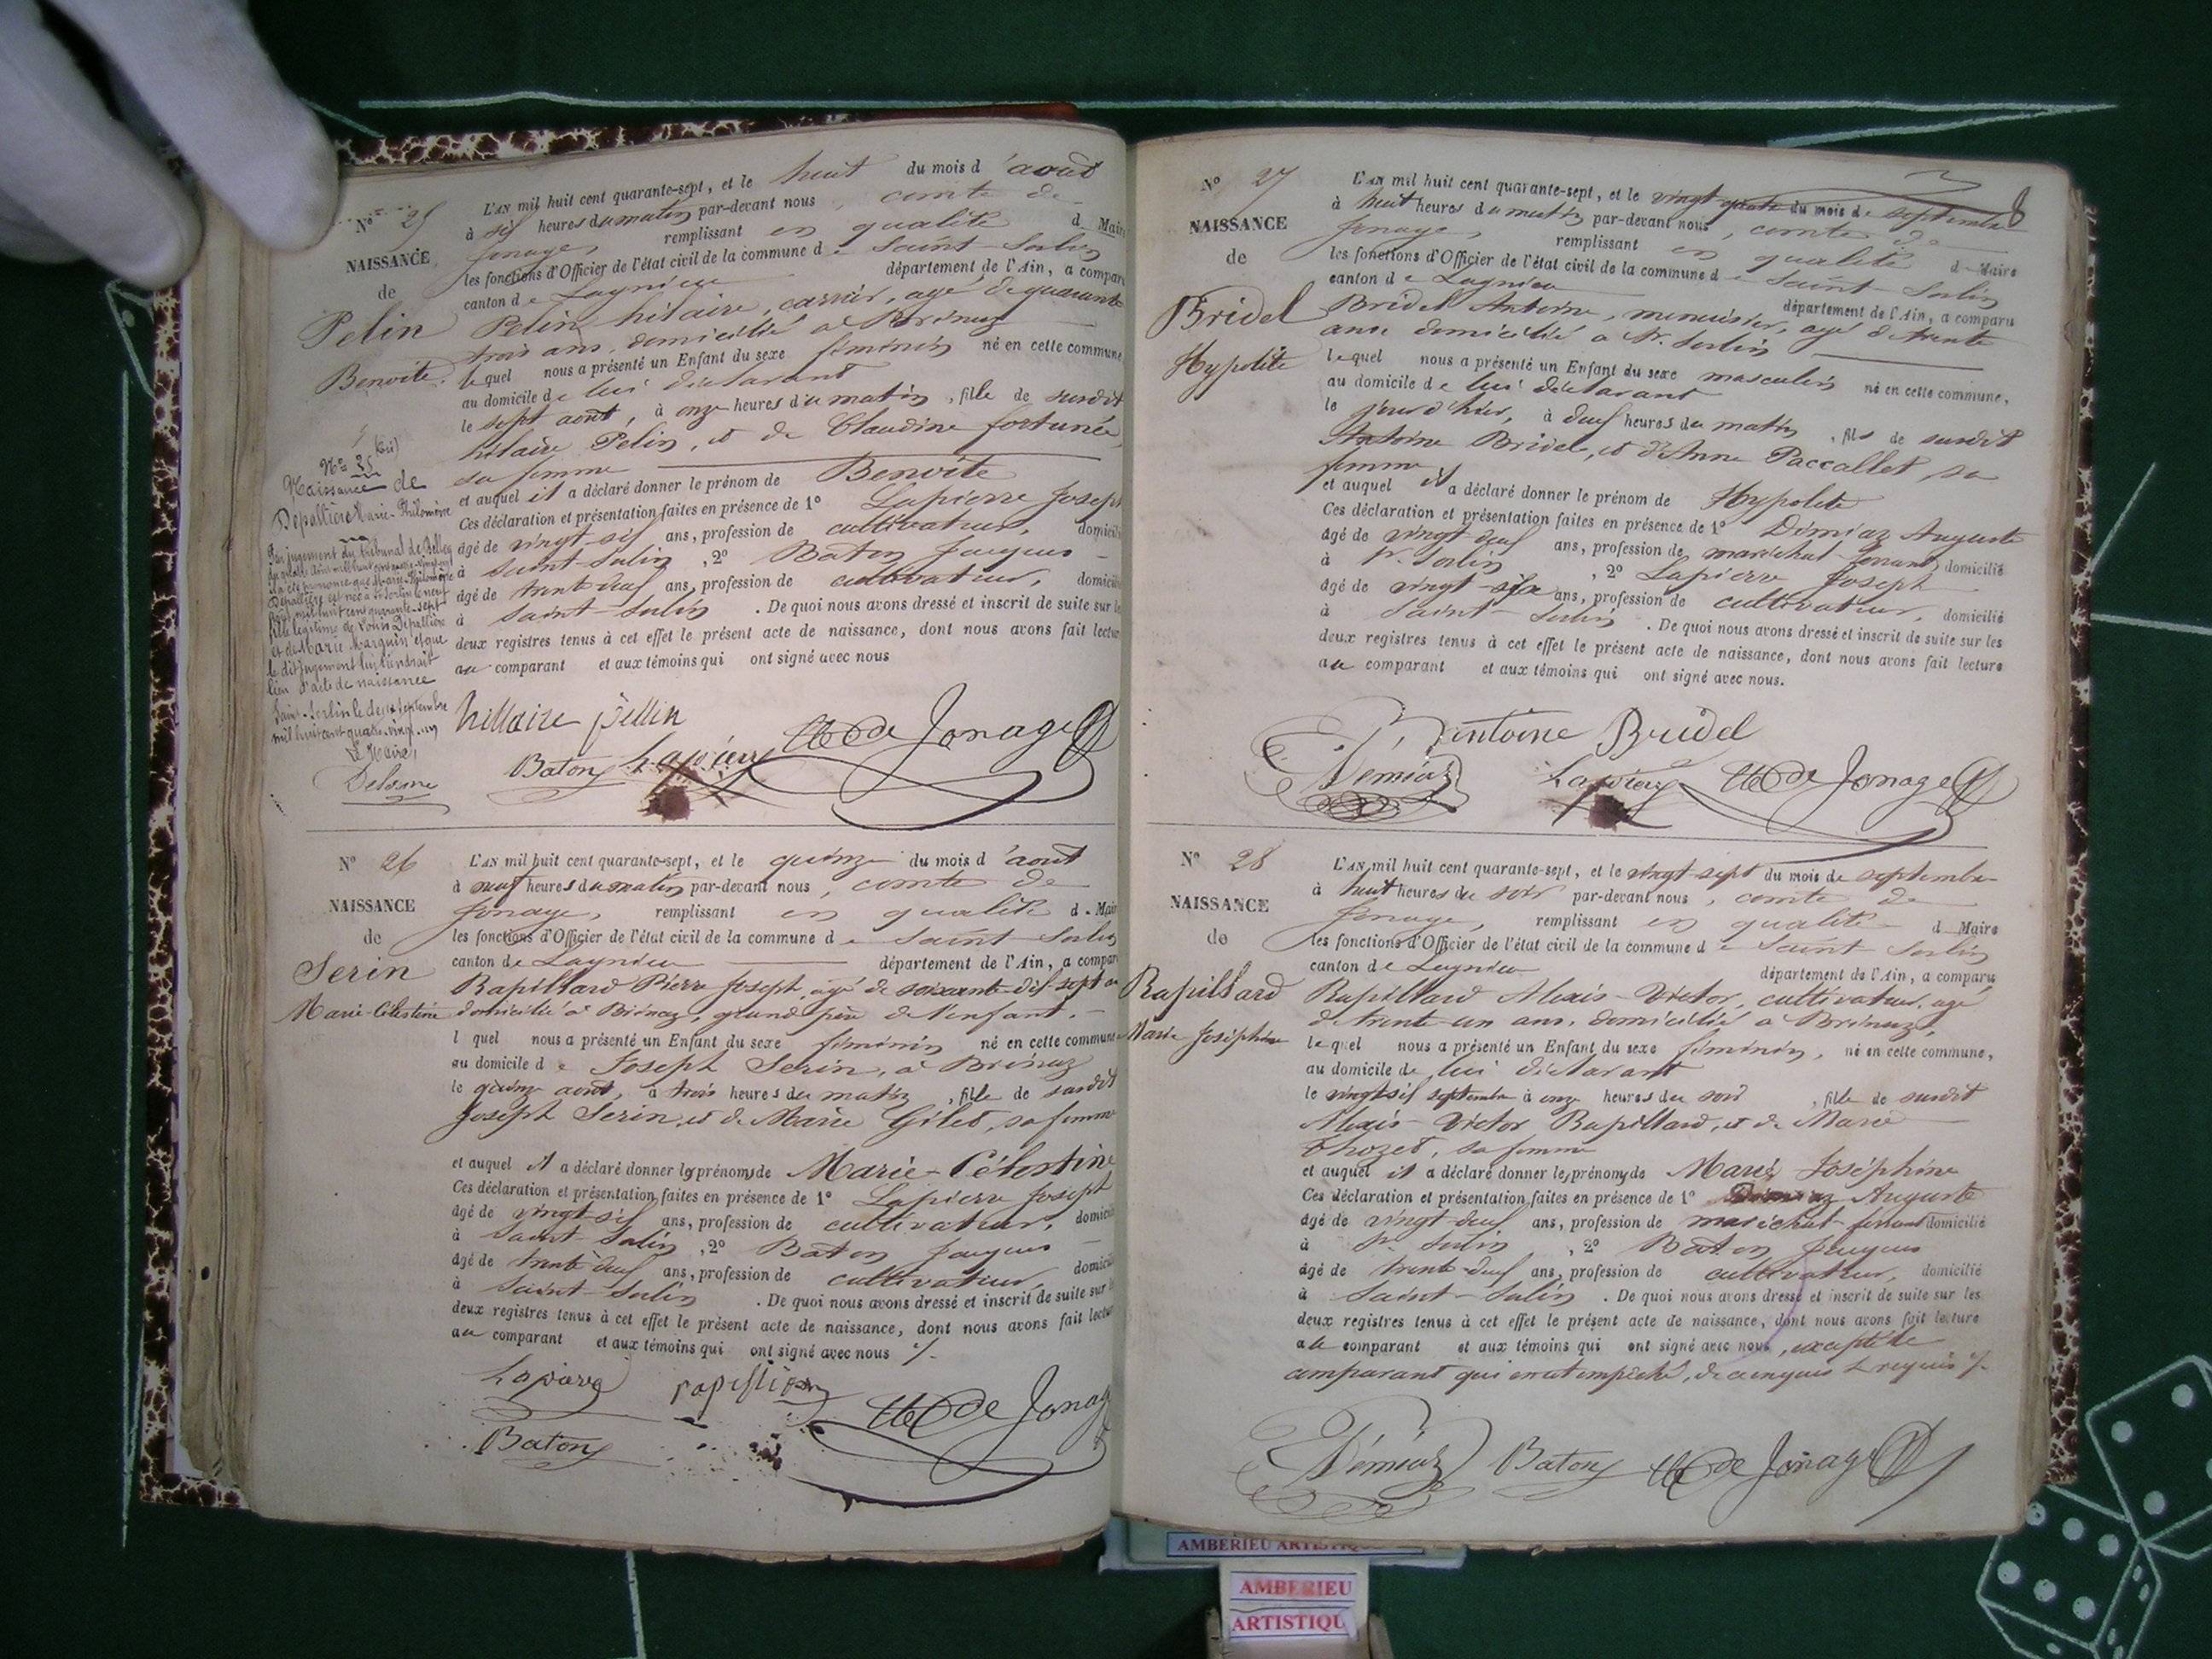 Nº 25
NAISSANCE
de
Pelin
Benoite.
L'AN mil huit cent quarante-sept, et le huit du mois d'août
à six heures du matin par-devant nous, comte de
Jonage, remplissant en qualité d Maire
les fonctions d'Officier de l'état civil de la commune de Saint-Sorlin
canton de Lagnieu département de l'Ain, a comparu
Pelin hilaire, carrier, agé de quarante
trois ans, domicilié à Brénaz
lequel nous a présenté un Enfant du sexe féminin né en cette commune
au domicile de lui déclarant
le sept août, à onze heures du matin, fille de susdit
hilaire Pelin, et de Claudine fortunée
sa femme
et auquel il a déclaré donner le prénom de Benoite
Ces déclaration et présentation faites en présence de 1º Lapierre Joseph
âgé de vingt-six ans, profession de cultivateur, domicilié
à Saint-Sorlin, 2º Baton Jacques
âgé de trente deux ans, profession de cultivateur, domicilié
à Saint-Sorlin. De quoi nous avons dressé et inscrit de suite sur les
deux registres tenus à cet effet le présent acte de naissance, dont nous avons fait lecture
au comparant et aux témoins qui ont signé avec nous
hillaire pellin
Baton Lapierre de Jonage
Nº 25 (bis)
Naissance de
Depallière Marie-Philomène
Par jugement du tribunal de Belley
il a été prononcé que Marie-Philomène
Depallière est née à St Sorlin le neuf
août mil huit cent quarante-sept
fille légitime de Louis Depallière
et de Marie Marguin et que
le dit jugement lui tiendrait
lieu d'acte de naissance
Saint-Sorlin le dix septembre
mil huit cent quatre-vingt-un
Le Maire,
Nº 26
NAISSANCE
de
Serin
Marie-Célestine
L'AN mil huit cent quarante-sept, et le quinze du mois d'août
à neuf heures du matin par-devant nous, comte de
Jonage, remplissant en qualité d. Maire
les fonctions d'Officier de l'état civil de la commune de Saint-Sorlin
canton de Lagnieu département de l'Ain, a comparu
Rapillard Pierre Joseph, agé de soixante dix-sept ans
domicilié à Brénaz, grand père de l'enfant.
l quel nous a présenté un Enfant du sexe féminin né en cette commune
au domicile de Joseph Serin, à Brénaz
le quinze août, à trois heures du matin, fille de susdit
Joseph Serin, et de Marie Gilet, sa femme
et auquel il a déclaré donner les prénoms de Marie-Célestine
Ces déclaration et présentation faites en présence de 1º Lapierre Joseph
âgé de vingt-six ans, profession de cultivateur, domicilié
à Saint-Sorlin, 2º Baton Jacques
âgé de trente-deux ans, profession de cultivateur, domicilié
à Saint-Sorlin. De quoi nous avons dressé et inscrit de suite sur les
deux registres tenus à cet effet le présent acte de naissance, dont nous avons fait lecture
au comparant et aux témoins qui ont signé avec nous
Lapierre de Jonage
Baton
Nº 27
8
NAISSANCE
de
Bridel
Hypolite
L'AN mil huit cent quarante-sept, et le vingt quatre du mois de septembre
à huit heures du matin par-devant nous, comte de
Jonage, remplissant en qualité d Maire
les fonctions d'Officier de l'état civil de la commune de Saint-Sorlin
canton de Lagnieu département de l'Ain, a comparu
Bridel Antoine, menuisier, agé de trente
ans domicilié à St. Sorlin
lequel nous a présenté un Enfant du sexe masculin né en cette commune,
au domicile de lui déclarant
le jour d'hier, à deux heures du matin, fils de susdit
Antoine Bridel, et d'Anne Paccallet, sa
femme
et auquel il a déclaré donner le prénom de Hypolite
Ces déclaration et présentation faites en présence de 1º Démiaz Auguste
âgé de vingt-deux ans, profession de maréchal-ferrant, domicilié
à St. Sorlin, 2º Lapierre Joseph
âgé de vingt-six ans, profession de cultivateur, domicilié
à Saint-Sorlin. De quoi nous avons dressé et inscrit de suite sur les
deux registres tenus à cet effet le présent acte de naissance, dont nous avons fait lecture
au comparant et aux témoins qui ont signé avec nous.
Antoine Bridel
Démiaz Lapierre de Jonage
Nº 28
NAISSANCE
de
Rapillard
Marie Joséphine
L'AN mil huit cent quarante-sept, et le vingt-sept du mois de septembre
à huit heures du soir par-devant nous, comte de
Jonage, remplissant en qualité d Maire
les fonctions d'Officier de l'état civil de la commune de Saint Sorlin
canton de Lagnieu département de l'Ain, a comparu
Rapillard Alexis-Victor, cultivateur, agé
de trente un ans, domicilié à Brénaz,
lequel nous a présenté un Enfant du sexe féminin, né en cette commune,
au domicile de lui déclarant
le vingt six septembre à onze heures du soir, fille de susdit
Alexis-Victor Rapillard, et de Marie
Chozet, sa femme
et auquel il a déclaré donner les prénoms de Marie Joséphine
Ces déclaration et présentation faites en présence de 1º Démiaz Auguste
âgé de vingt-deux ans, profession de maréchal-ferrant domicilié
à St. Sorlin, 2º Baton Jacques
âgé de trente-deux ans, profession de cultivateur, domicilié
à Saint-Sorlin. De quoi nous avons dressé et inscrit de suite sur les
deux registres tenus à cet effet le présent acte de naissance, dont nous avons fait lecture
au comparant et aux témoins qui ont signé avec nous, excepté le
comparant qui en a empêché, de ce enquis et requis
Démiaz Baton de Jonage
AMBERIEU ARTISTIQUE
AMBERIEU
ARTISTIQU